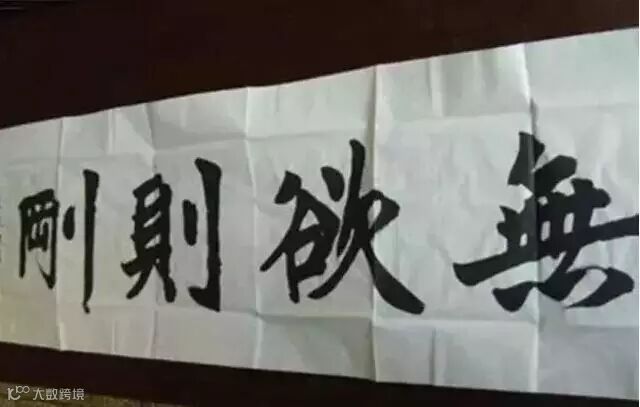 無欲則剛
大数跨境